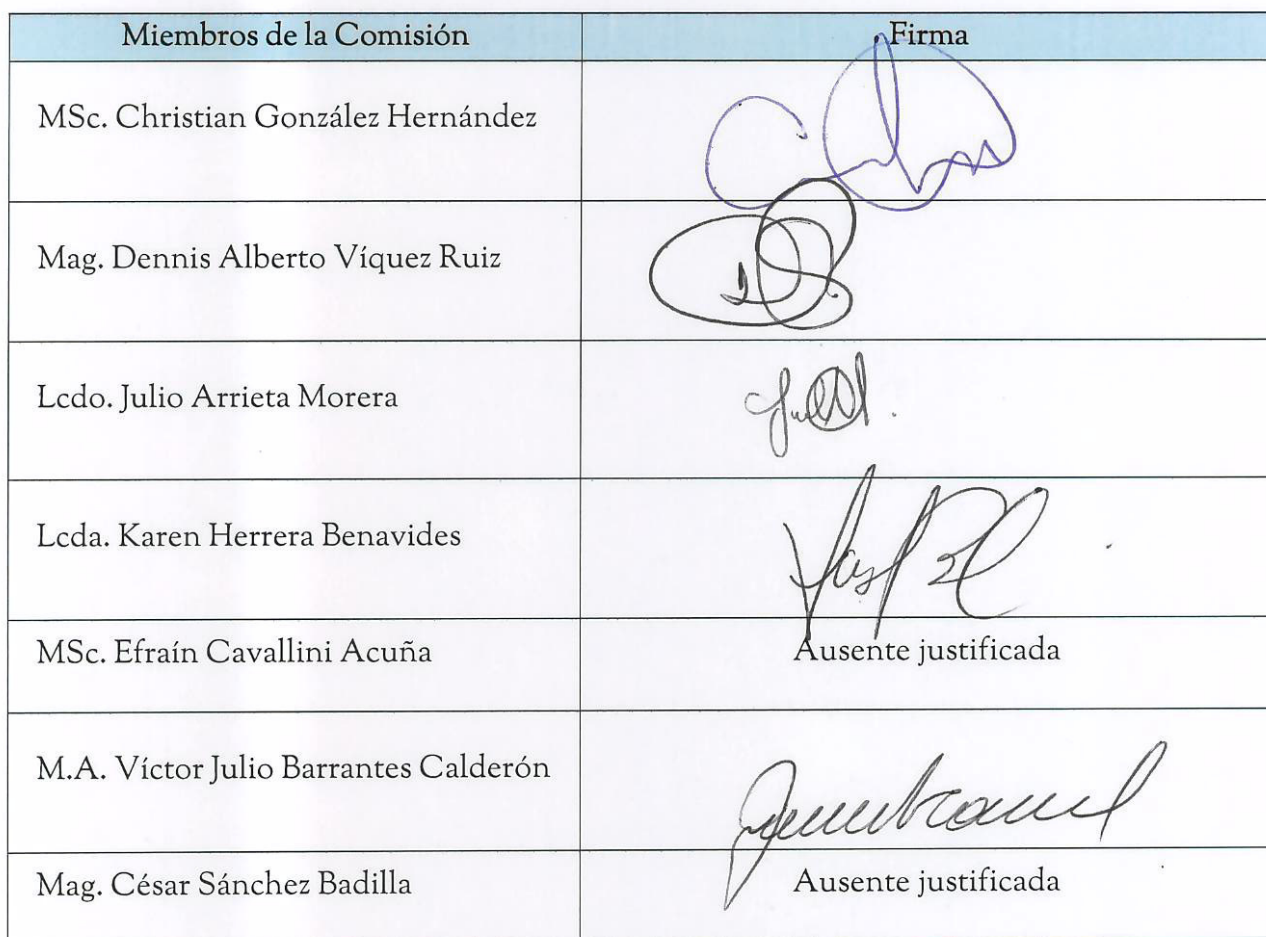 Miembros de la Comisión Firma
MSc. Christian González Hernández
Mag. Dennis Alberto Víquez Ruiz
Lcdo. Julio Arrieta Morera
Lcda. Karen Herrera Benavides
MSc. Efraín Cavallini Acuña Ausente justificada
M.A. Víctor Julio Barrantes Calderón
Mag. César Sánchez Badilla Ausente justificada